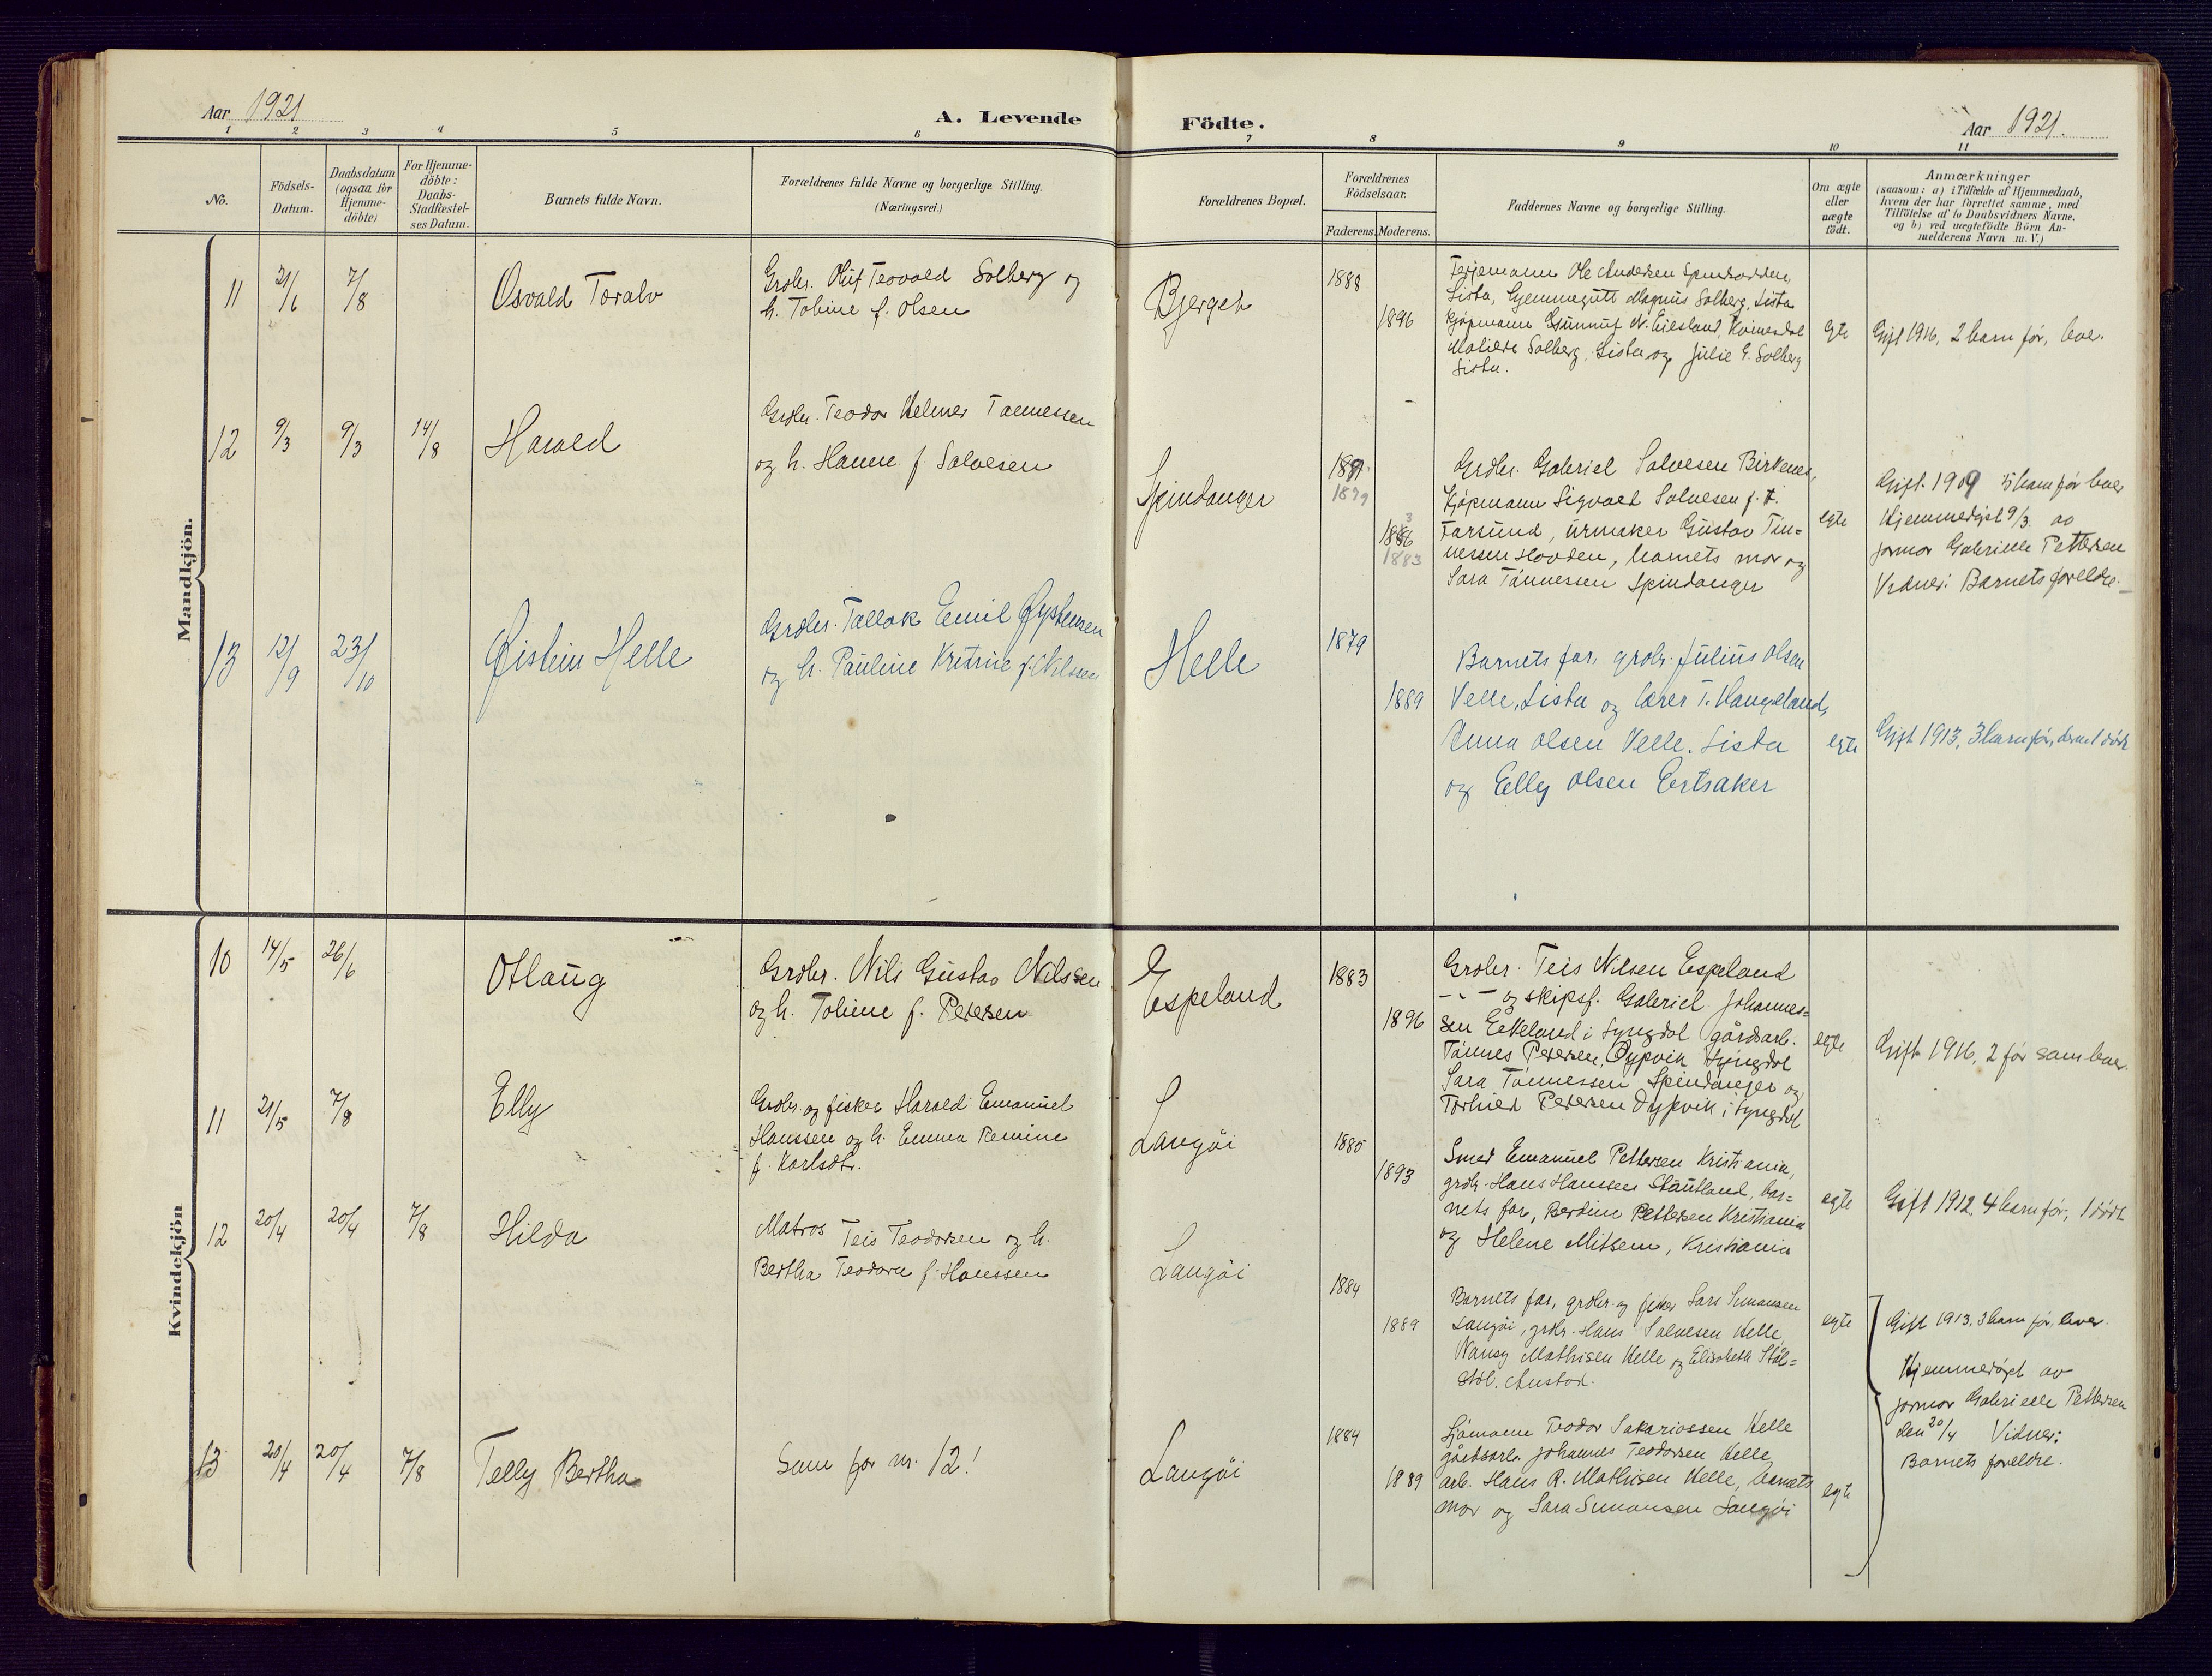 Aar 1921
A. Levende
Födte.
Aar 1921.
1 2 3 4 5 6 7 8 9 10 11
No.
Födsels-
Datum.
Daabsdatum
(ogsaa for
Hjemme-
döbte)
For Hjemme-
döbte:
Daabs-
Stadfæstel-
ses Datum.
Barnets fulde Navn.
Forældrenes fulde Navne og borgerlige Stilling.
(Næringsvei.)
Forældrenes Bopæl.
Forældrenes
Födselsaar.
Faderens. Moderens.
Faddernes Navne og borgerlige Stilling.
Om ægte
eller
uægte
födt.
Anmærkninger
(saasom: a) i Tilfælde af Hjemmedaab,
hvem der har forrettet samme, med
Tilföielse af to Daabsvidners Navne,
og b) ved uægtefödte Börn An-
melderens Navn m. V.)
Mandkjön.
11
21/6
7/8
Osvald Toralv
Grdbr. Oluf Teovald Solberg og
h. Tobine f. Olsen
Bjerget
1888
1896
Ferjemann Ole Andersen Spindsodden,
Lista, Hjemmegutt Magnus Solberg, Lista
Kjøpmann Gunnuf N. Eilsland, Kvinesdal
Solberg, Lista og Julie G. Solberg
Lista.
egte
Gift 1916, 2 barn før, lever.
12
9/3
9/3
14/8
Harald
Grdbr. Teodor Helmer Tønnessen
og h. Hanne f. Salvesen
Spindanger
1879
1883
Grdbr. Gabriel Salvesen Birkenes,
Kjøpmann Sigvald Salvesen f. t.
Farsund, urmaker Gustav Tøn=
nessen Hovden, barnets mor og
Sara Tønnessen Spindanger
egte
Gift. 1909 5 barn før lever
Hjemmedøpt 9/3. av
jormor Gabrielle Pettersen
Vidner: Barnets foreldre.
13
12/9
23/10
Øistein Helle
Grdbr. Tallak Emil Øystensen
og h. Pauline Katrine f. Nilsen
Helle
1879
1889
Barnets far, grdbr. Julius Olsen
Velle, Lista og lærer T. Haugeland,
Anna Olsen Velle, Lista
og Elly Olsen Eertsaker
egte
Gift 1913, 3 barn før, derav 1 død
Kvindekjön
10
14/5
26/6
Otlaug
Grdbr. Nils Gustav Nilssen
og h. Tobine f. Petersen
Espeland
1883
1896
Grdbr. Teis Nilsen Espeland
- " - og skipsf. Gabriel Johannes=
sen Eikeland i Lyngdal gårdsarb.
Tønnes Petersen, Dypvik Lyngdal
Sara Tønnessen Spindanger og
Torhild Petersen Dypvik i Lyngdal
egte
Gift 1916, 2 før som lever.
11
21/5
7/8
Elly
Grdbr. og fisker Harald Emanuel
Hanssen og h. Emma Remine
f. Karlsdtr.
Langøi
1885
1893
Smed Emanuel Pettersen Kristiania,
grdbr. Hans Hanssen Stautland, bar=
nets far, Bertine Pettersen Kristiania
og Helene Nilsen, Kristiania
egte
Gift 1912, 4 barn før, 1 dødt
12
20/4
20/4
7/8
Hilda
Matros Teis Teodorsen og h.
Bertha Teodora f. Hanssen
Langøi
1884
1889
Barnets far, grdbr. og fisker Lars Simonsen
Langøi, grdbr. Hans Salvesen Helle,
Nancy Mathisen Helle og Elisabeth Støl=
støl. Austad.
egte
Gift 1913, 3 barn før, lever.
Hjemmedøpt av
jormor Gabrielle Pettersen
den 20/4 Vidner:
Barnets foreldre.
13
20/4
20/4
7/8
Telly Bertha
Som for nr. 12!
Langøi
1884
1889
Sjømann Teodor Sakariassen Helle
gårdsarb. Johannes Teodorsen Helle,
arb. Hans R. Mathisen Helle, barnets
mor og Sara Simonsen Langøi
egte